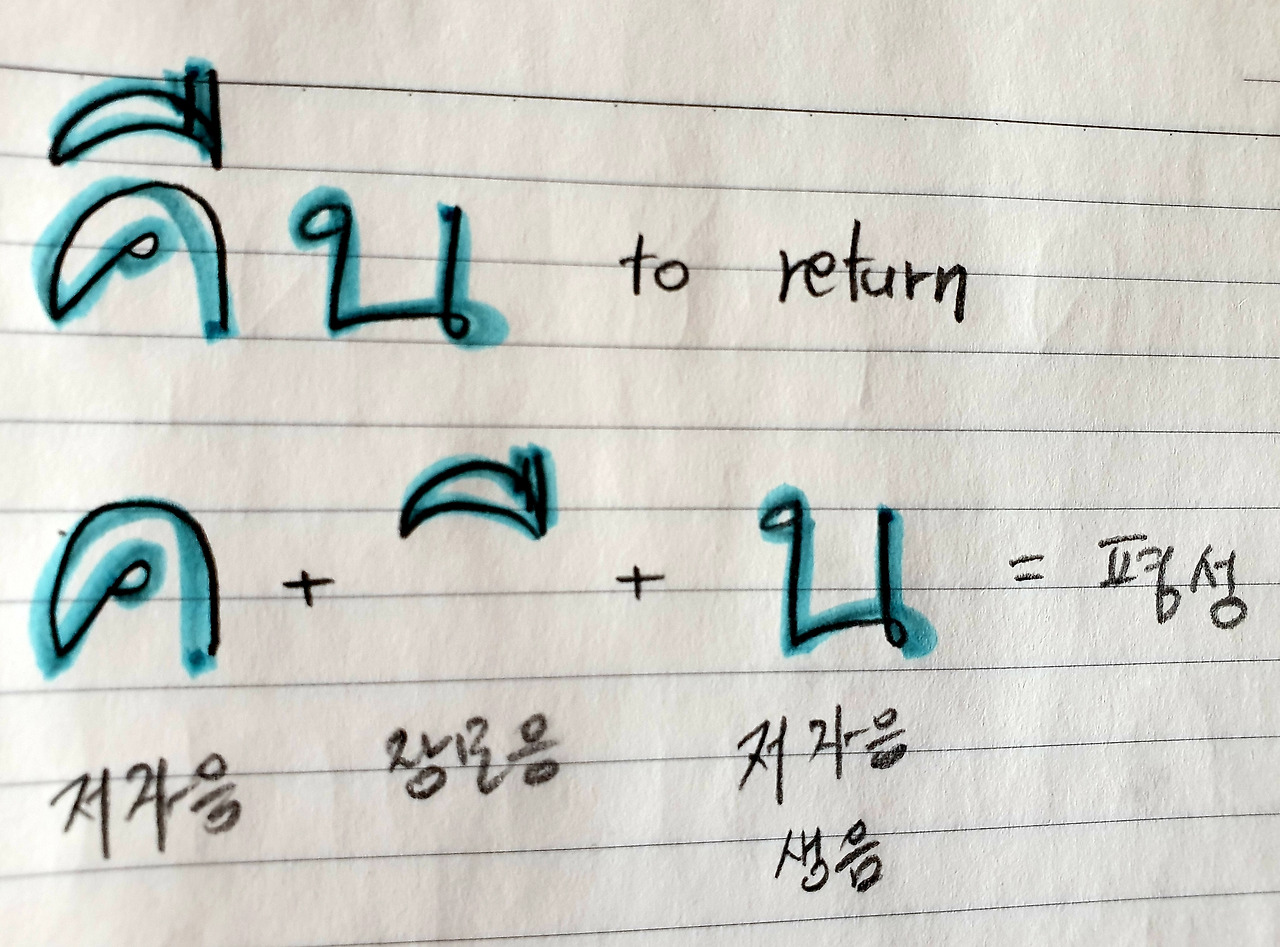 คืน to return
ค + ื + น = 평성
저자음 장모음 저자음
생음